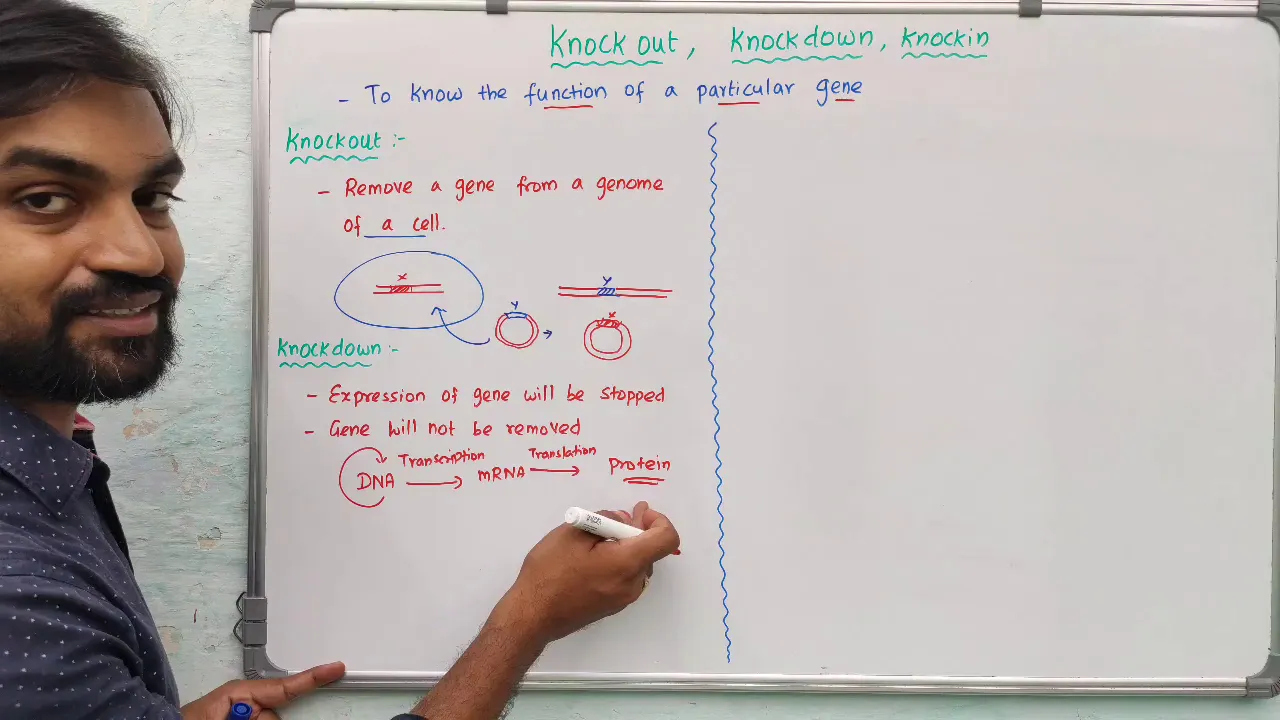 Knock out, Knockdown, Knockin
- To know the function of a particular gene
Knockout :-
- Remove a gene from a genome
of a cell.
x
y
y
x
Knockdown :-
- Expression of gene will be stopped
- Gene will not be removed
DNA Transcription mRNA Translation Protein